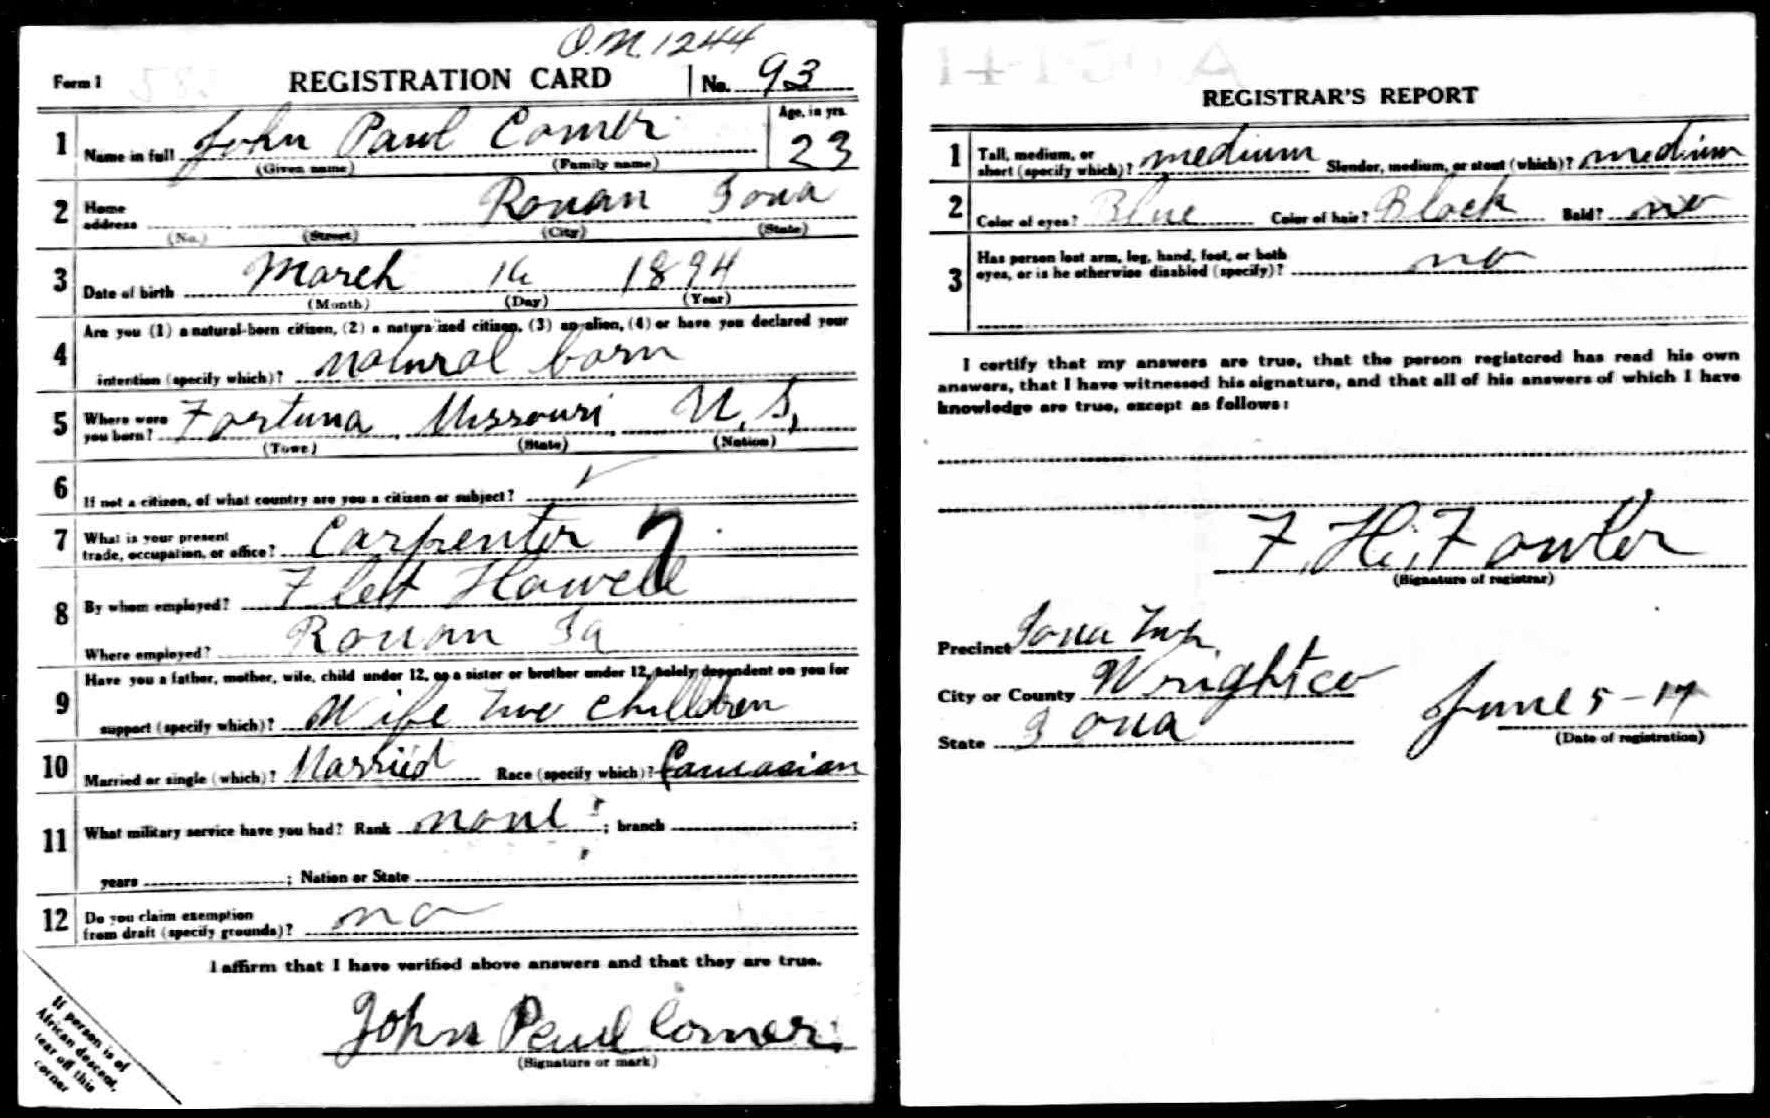 O.M. 1244
Form 1 REGISTRATION CARD No. 93
1 Name in full John Paul Comer Age, in yrs. 23
(Given name) (Family name)
2 Home address Rowan Iowa
(No.) (Street) (City) (State)
3 Date of birth March 16 1894
(Month) (Day) (Year)
4 Are you (1) a natural-born citizen, (2) a naturalized citizen, (3) an alien, (4) or have you declared your
intention (specify which)? natural born
5 Where were you born? Fortuna Missouri U.S.
(Town) (State) (Nation)
6 If not a citizen, of what country are you a citizen or subject?
7 What is your present trade, occupation, or office? Carpenter 7
8 By whom employed? Howell
Where employed? Rowan Ia
9 Have you a father, mother, wife, child under 12, or a sister or brother under 12, solely dependent on you for
support (specify which)? Wife two children
10 Married or single (which)? Married Race (specify which)? Caucasian
11 What military service have you had? Rank none ; branch ;
years ; Nation or State
12 Do you claim exemption from draft (specify grounds)? no
I affirm that I have verified above answers and that they are true.
John Paul Comer
(Signature or mark)
If person is of
African descent,
tear off this
corner
REGISTRAR'S REPORT
1 Tall, medium, or short (specify which)? medium Slender, medium, or stout (which)? medium
2 Color of eyes? Blue Color of hair? Black Bald? no
3 Has person lost arm, leg, hand, foot, or both
eyes, or is he otherwise disabled (specify)? no
I certify that my answers are true, that the person registered has read his own
answers, that I have witnessed his signature, and that all of his answers of which I have
knowledge are true, except as follows:
F. H. Fowler
(Signature of registrar)
Precinct Iowa Twp.
City or County Wright co
State Iowa
June 5-17
(Date of registration)